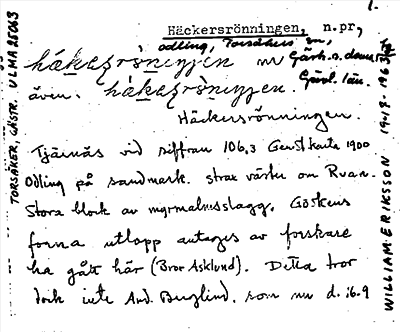 1.
Häckersrönningen, n.pr,
odling, Torsåkers sn,
Gästr. o. domsaga
Gävl. län.
även.
Häckersrönningen.
Tjärnäs vid siffran 106,3 Gen.st.karta 1900
Odling på sandmark. strax väster om Ryan.
Stora block av myrmalmsslagg. Göskens
forna utlopp antages av forskare
ha gått här (Bror Asklund). Detta tror
dock inte And. Berglind. som nu d. 16.9
TORSÅKER, GÄSTR. ULMA 25063
WILLIAM ERIKSSON 19-9-1963